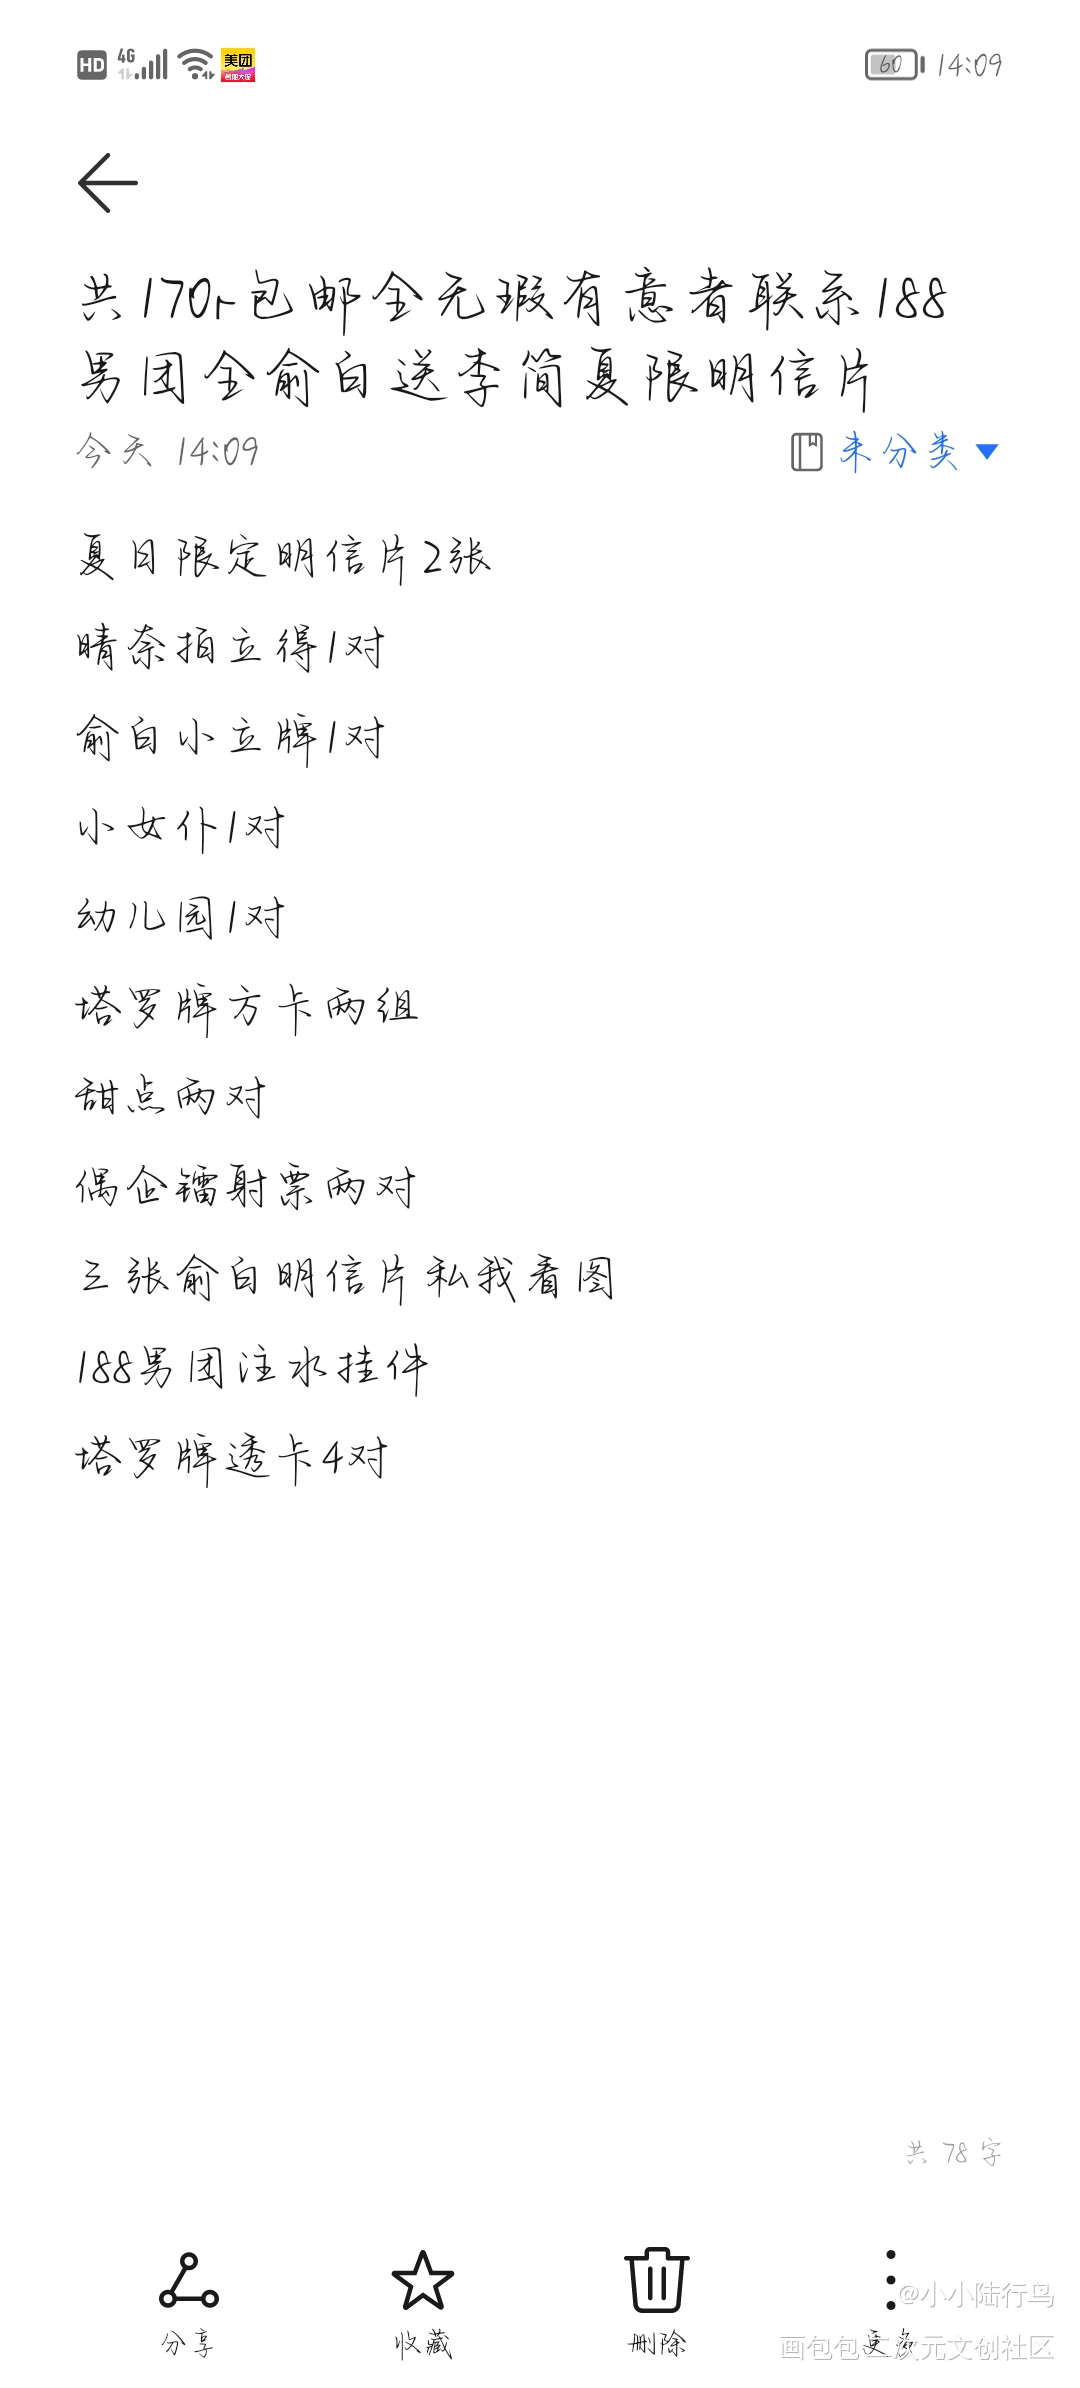 HD 4G 美团 60 14:09
共170r包邮全无瑕有意者联系188
男团全俞白送李简夏限明信片
今天 14:09 未分类
夏日限定明信片2张
晴奈拍立得1对
俞白小立牌1对
小女仆1对
幼儿园1对
塔罗牌方卡两组
甜点两对
偶企镭射票两对
三张俞白明信片私我看图
188男团注水挂件
塔罗牌透卡4对
共 78 字
@小小陆行鸟
分享 收藏 删除 更多
画包包二次元文创社区